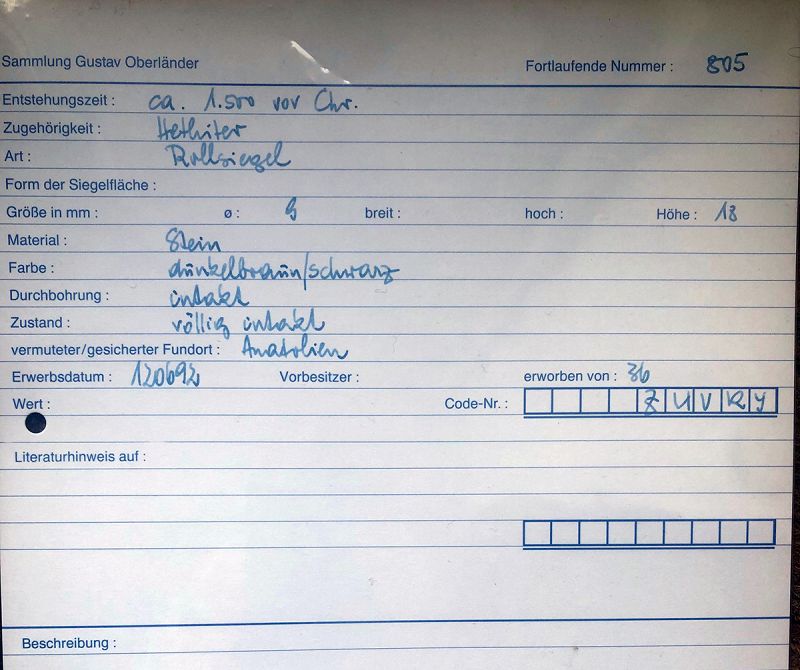 Sammlung Gustav Oberländer Fortlaufende Nummer : 805
Entstehungszeit : ca. 1.500 vor Chr.
Zugehörigkeit : Hethiter
Art : Rollsiegel
Form der Siegelfläche :
Größe in mm : ø : 9 breit : hoch : Höhe : 18
Material : Stein
Farbe : dunkelbraun/schwarz
Durchbohrung : intakt
Zustand : völlig intakt
vermuteter/gesicherter Fundort : Anatolien
Erwerbsdatum : 120692 Vorbesitzer : erworben von : 36
Wert : Code-Nr. : ZUVRY
Literaturhinweis auf :
Beschreibung :